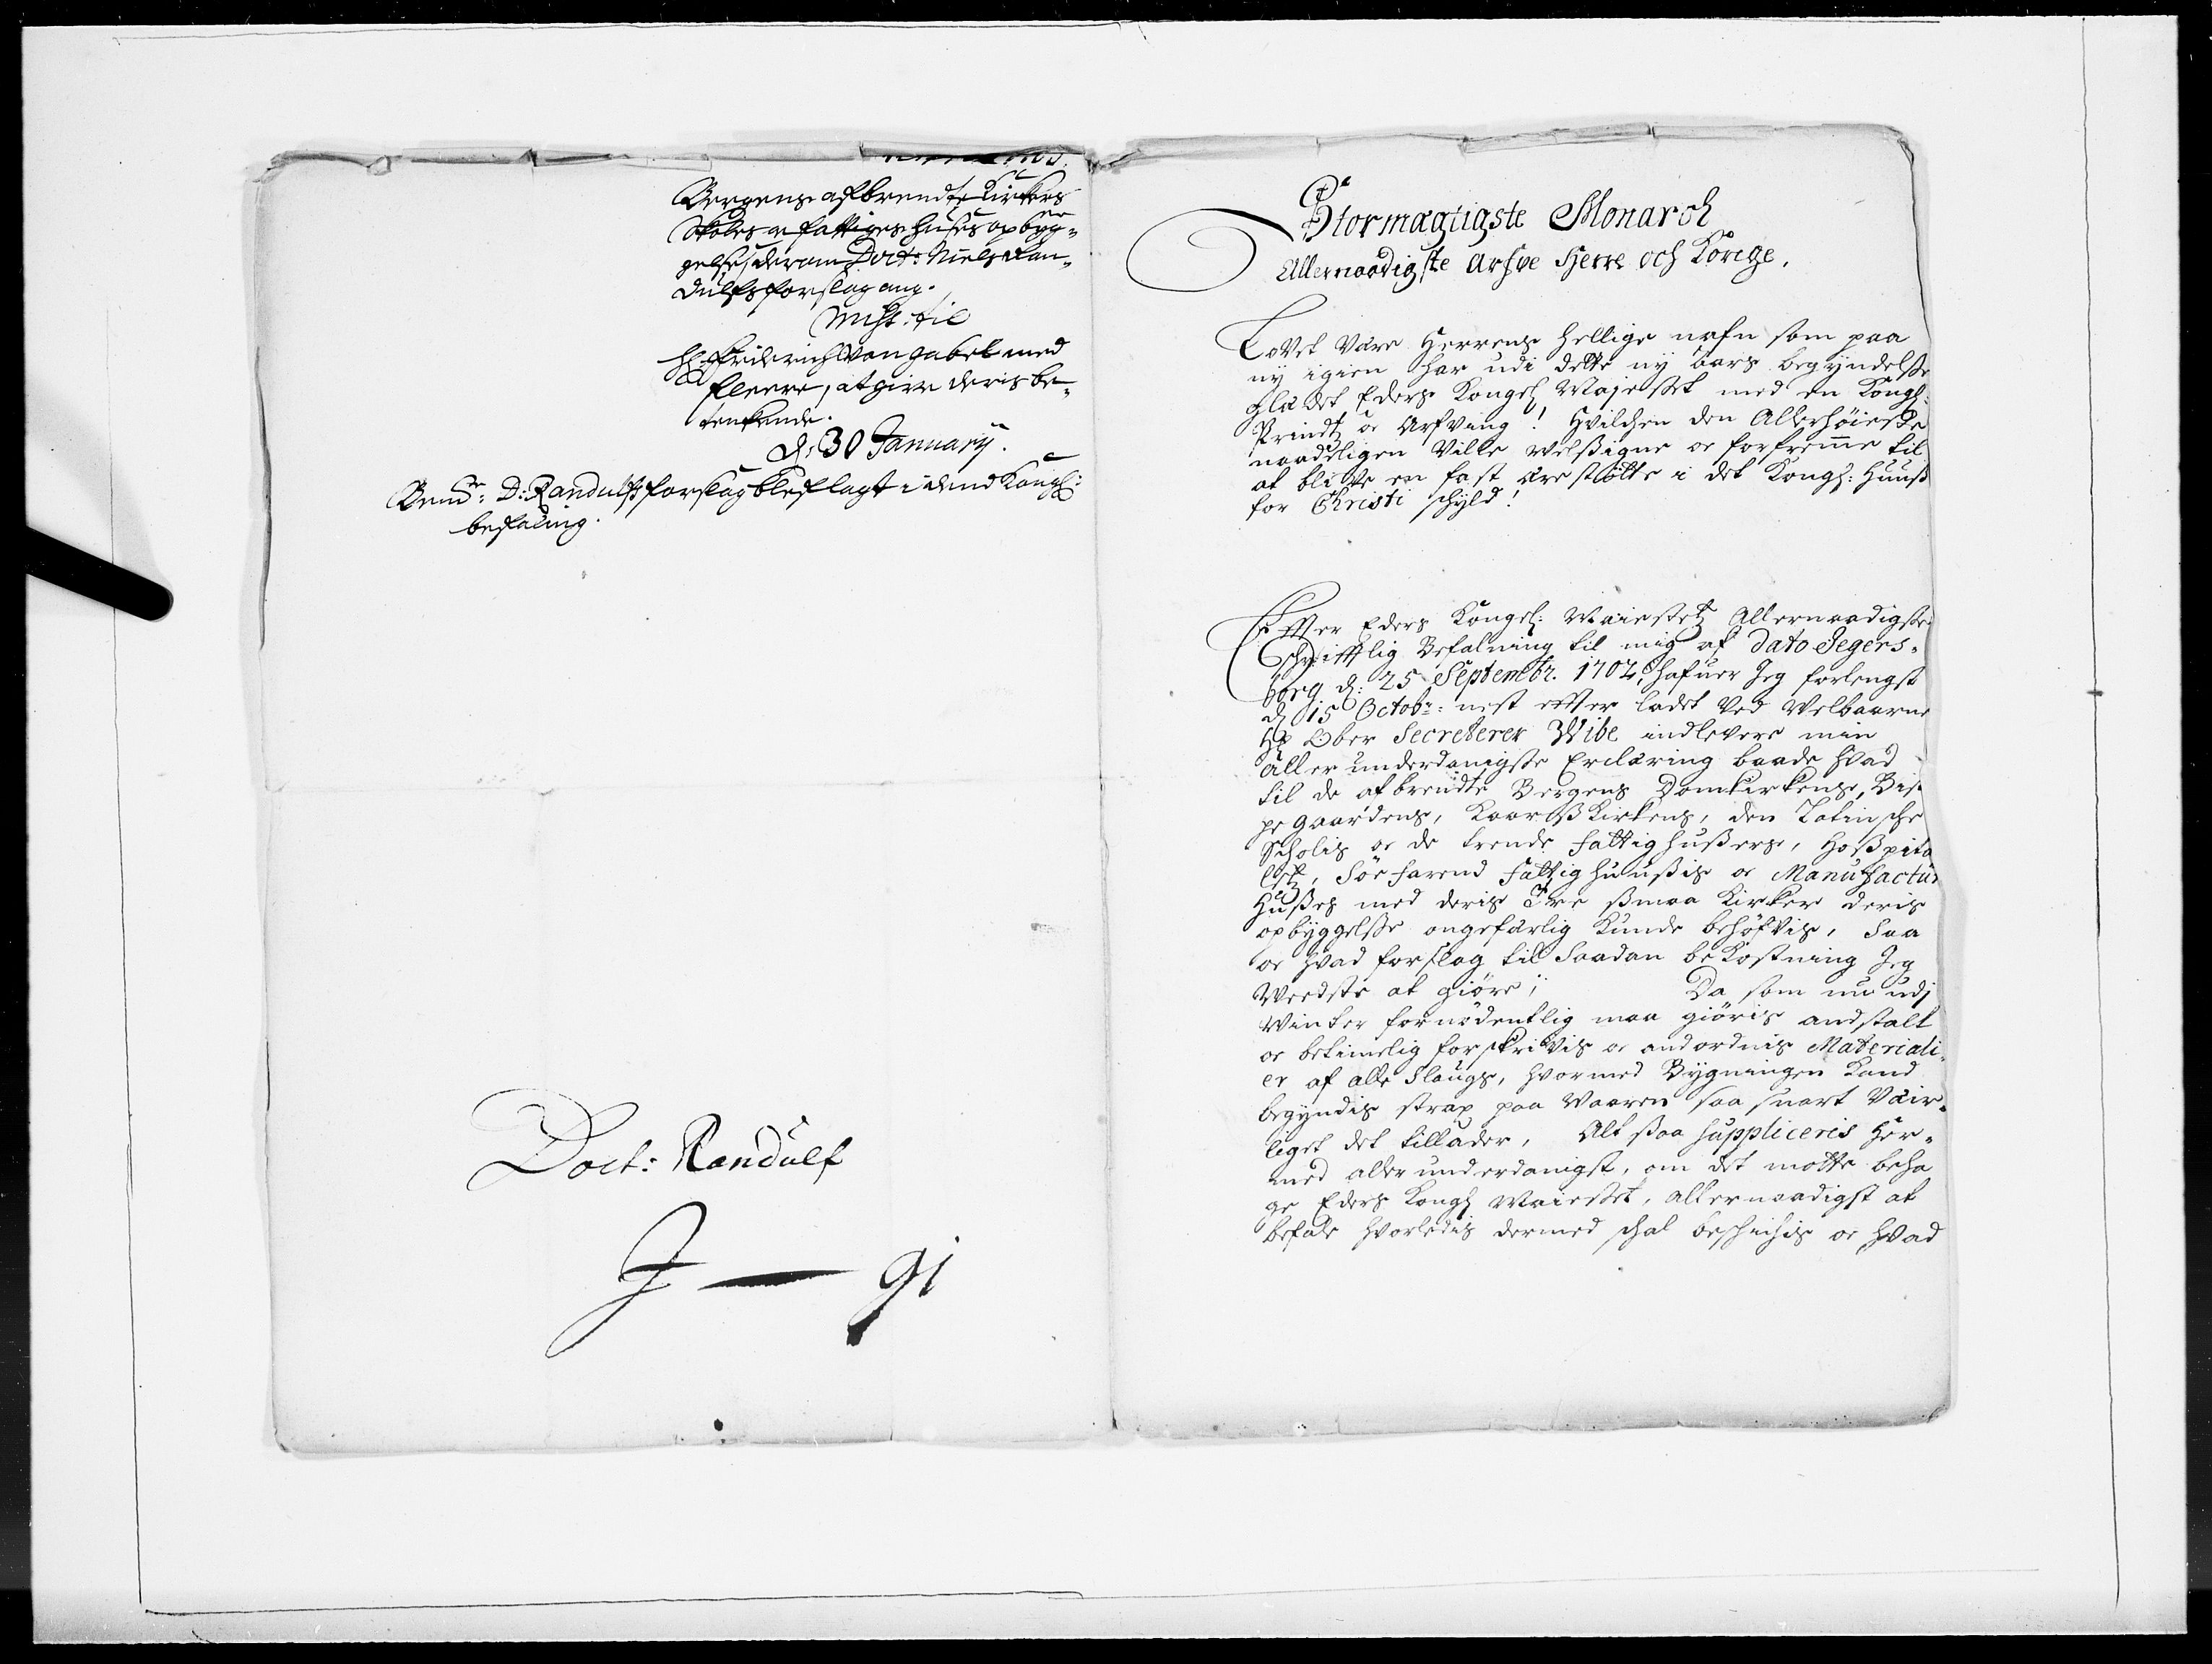 Bergens afbrendte Kirkers
Skoles oc fattiges huses opbyg-
gelse, derom Doct: Niels Ran-
dulfs forslag ang.
Miss: til
H: Friderich Von Gabel med
fleere, at give deris be-
tenkende.
d: 30 January.
Bemte: D: Randulfs forslag blef lagt i dend Kongl:
befaling.
Doct: Randulf
J — 91
Stormægtigste Monarch
Allernaadigste Arfve Herre och Konge.
Lovet være Herrens hellige nafn som paa
ny igien har udi dette ny aars begyndelsse
glædet Eders Kongel Majestet med en Kongl:
Prindtz oc Arfving! Hvilchen den Allerhøieste
naadeligen ville velssigne oc forfremme til
at blive en fast ærestøtte i det Kongl: Huuss
for Christi schyld!
Effter Eders Kongel: Maiestetz Allernaadigste
schrifftlig Befalning til mig af dato Jegers-
borg d: 25 Septembr. 1702, hafuer Jeg forlengst
d 15 Octobr: nest effter ladet ved Velbaarne
Hr Ober Secreterer Wibe indlevere min
aller underdanigste Erclæring baade hvad
til de afbrendte Bergens Domkirkens, Bis-
pe gaardens, Kaarss Kirkens, den Latinsche
Scholis oc de trende fattighussers, Hosspita
letz, Søe farend fattighuussis oc Manufactur
Husses med deris Tre ssmaa Kirker deris
opbyggelsse ongefærlig kunde behøfvis, saa
oc hvad forslag til saadan bekostning Jeg
Weedste at giøre; Da som nu udj
Winter fornødentlig maa giøris andstalt
oc betimelig forskrivis oc andordnis Materiali-
er af alle slaugs, hvormed Bygningen kand
begyndis strax paa Vaaren saa snart Veir-
liget det tillader, Alt ssaa suppliceris her-
med aller underdanigst, om det motte beha
ge Eders Kongl Maiestet, allernaadigst at
befale hvorledis dermed schal beschichis oc hvad